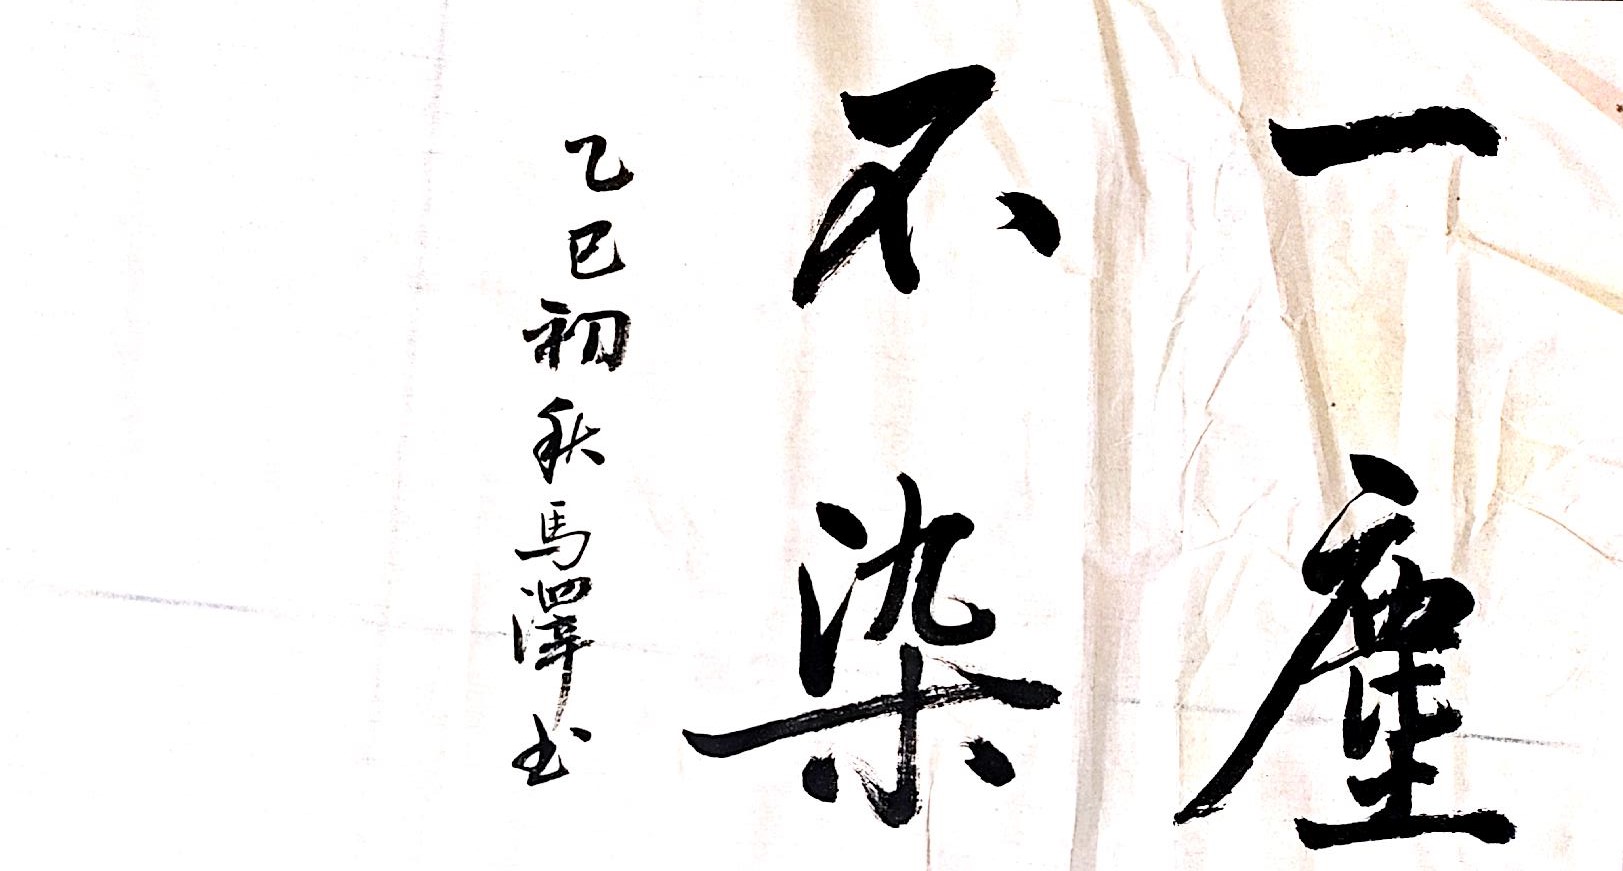 一塵
不染
乙巳初秋馬澤书